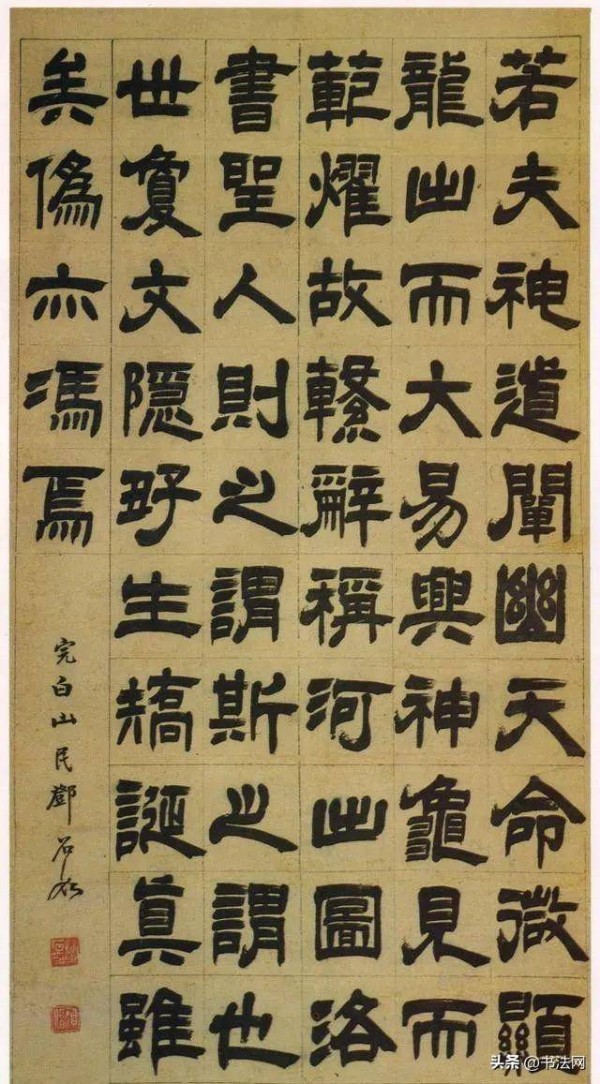 若夫神道闡幽天命微顯
龍出而大易興神龜見而
範燿故繫辭稱河出圖洛
書聖人則之謂斯之謂也
世夐文隱好生矯誕真雖
矣僞亦馮焉
完白山民鄧石如
头条 @书法网